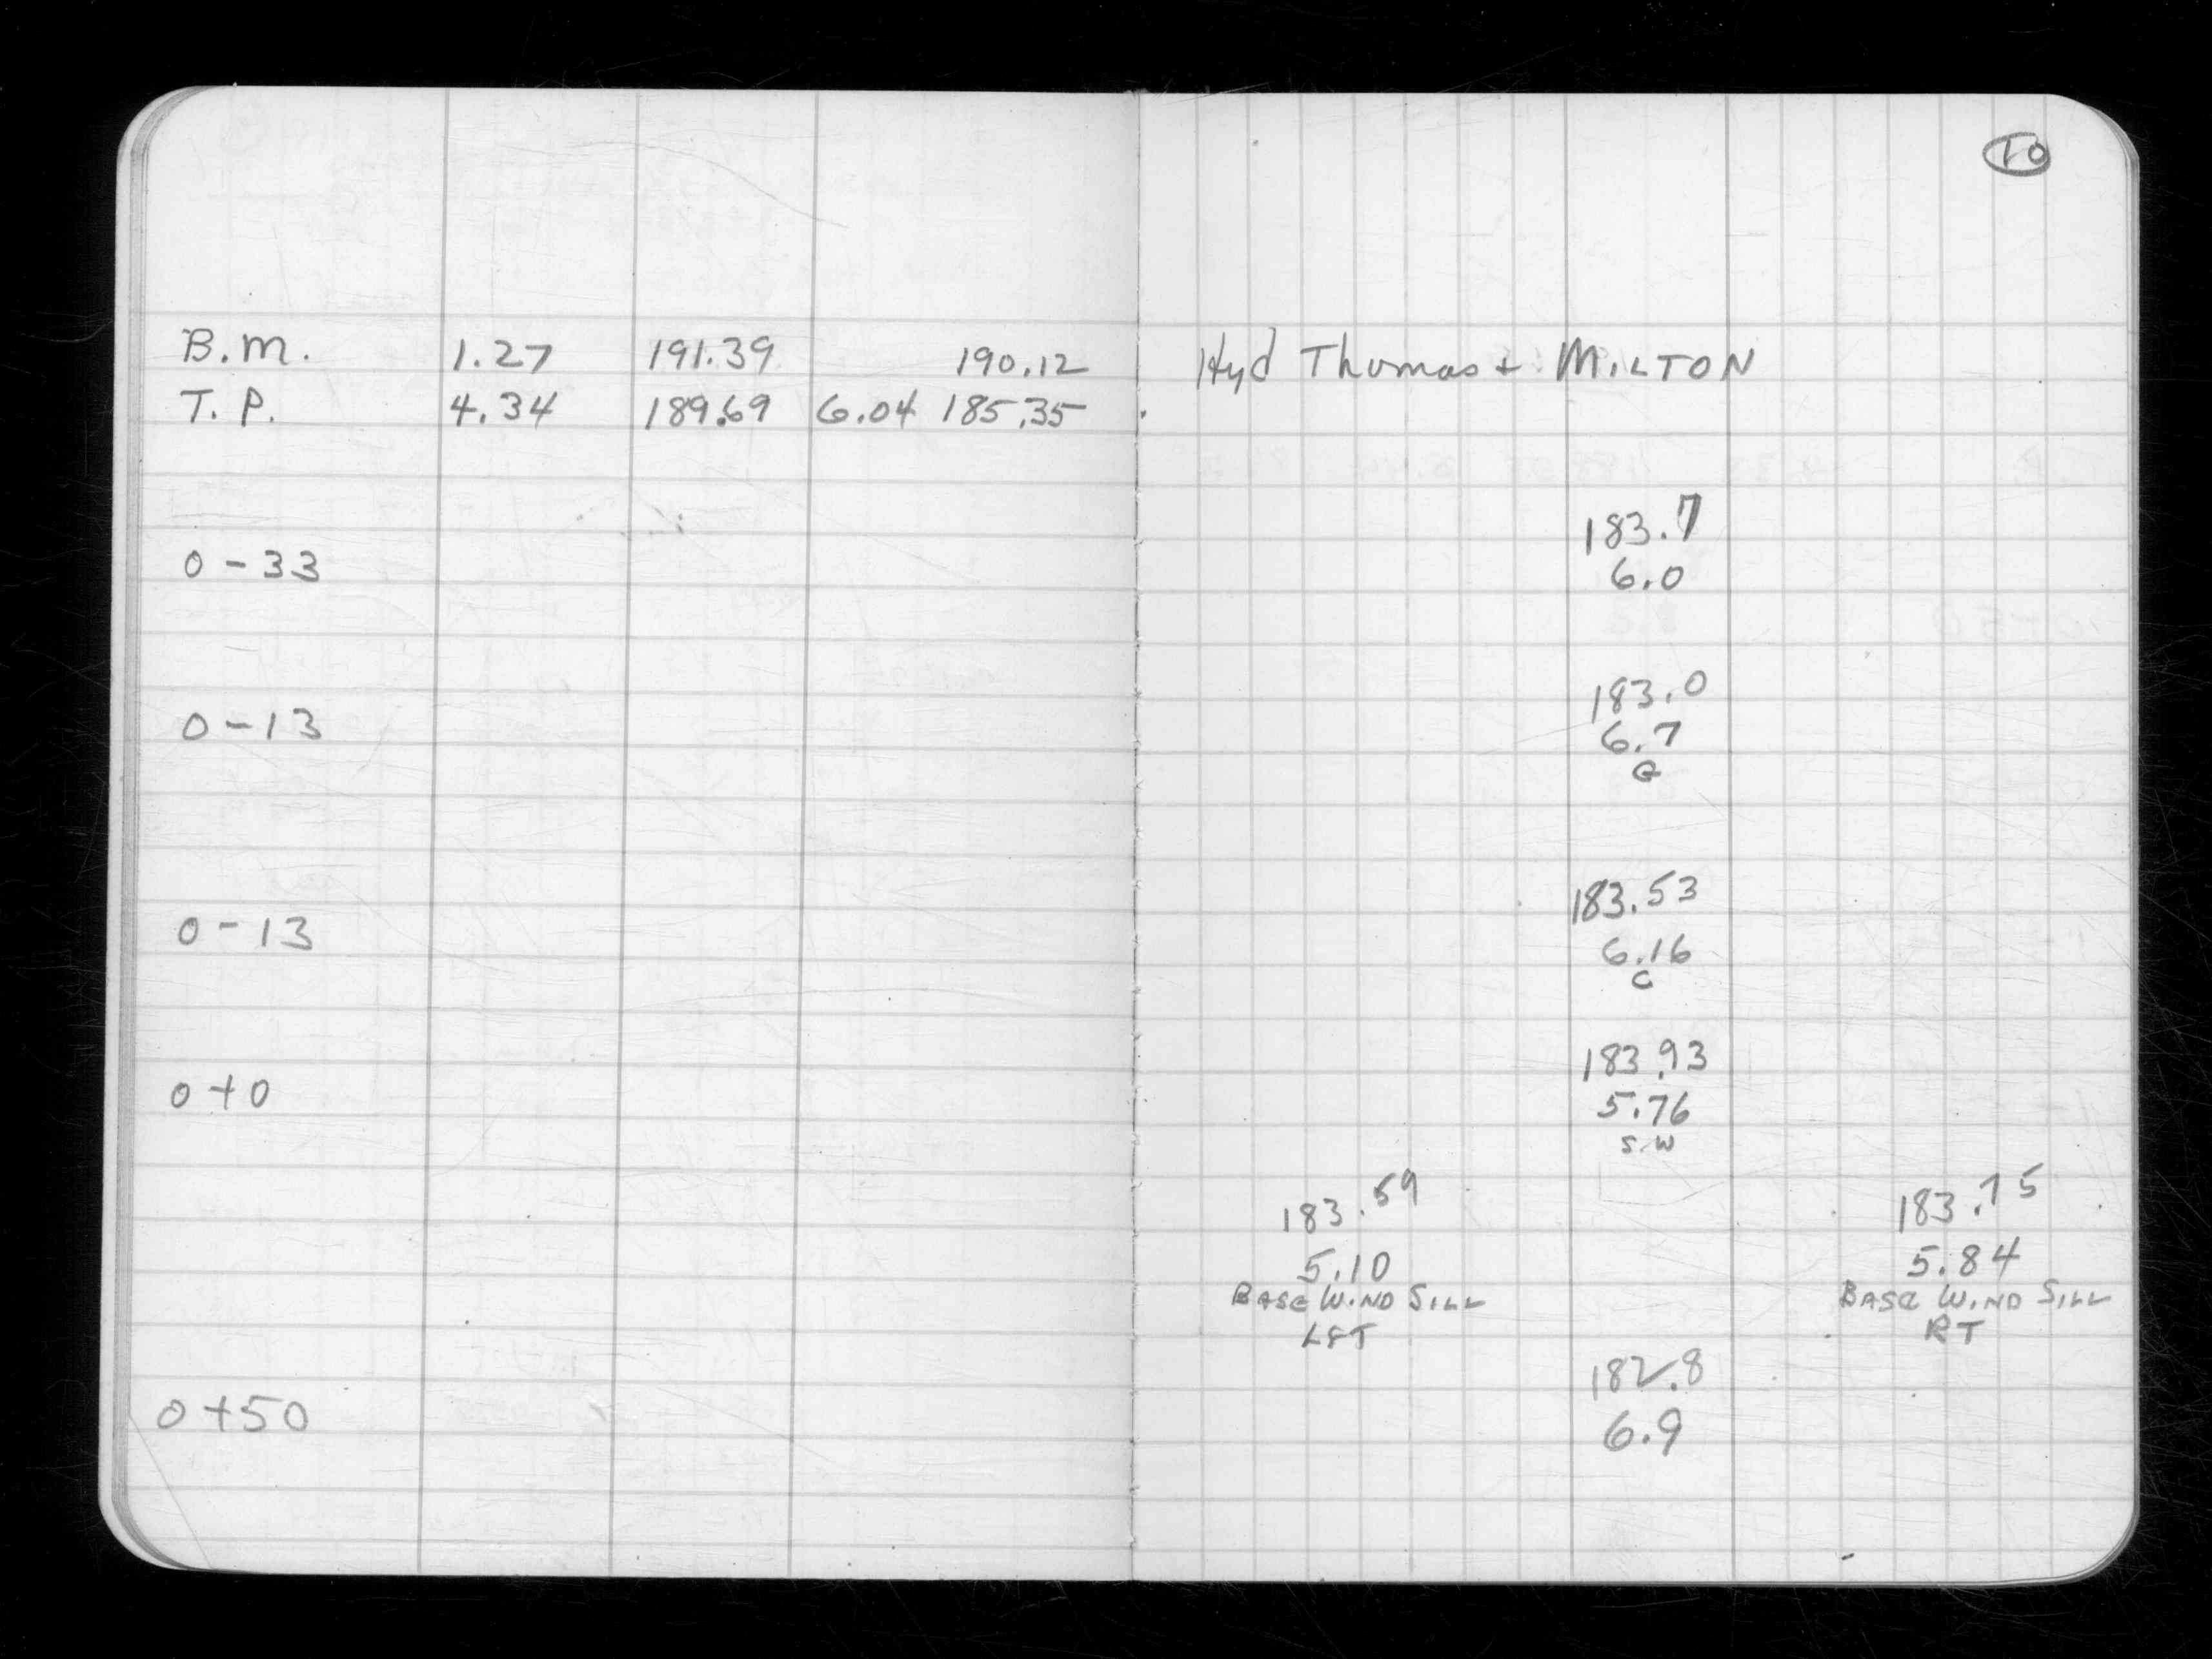 10
B.M. 1.27 191.39 190.12 Hyd Thomas + MILTON
T.P. 4.34 189.69 6.04 185.35
183.7
0-33 6.0
183.0
0-13 6.7
G
183.53
0-13 6.16
C
183.93
0+0 5.76
S.W
183.59 183.75
5.10 5.84
BASE WIND SILL BASE WIND SILL
LFT RT
182.8
0+50 6.9